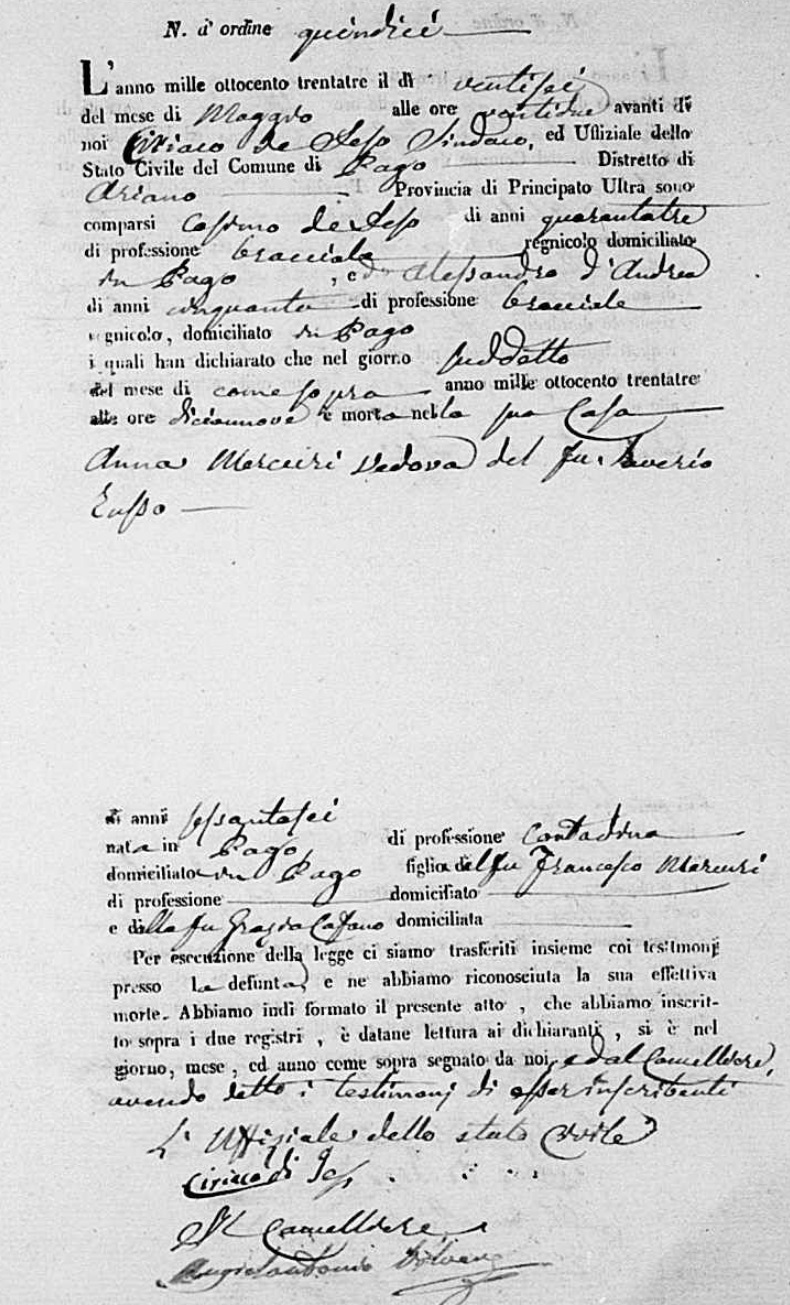 N. d' ordine quindici
L'anno mille ottocento trentatre il dì ventisei
del mese di Maggio alle ore ventidue avanti di
noi Ciriaco de Jeso Sindaco, ed Uffiziale dello
Stato Civile del Comune di Pago Distretto di
Ariano Provincia di Principato Ultra sono
comparsi Cosimo de Jeso di anni quarantatre
di professione bracciale regnicolo domiciliato
in Pago , e Alessandro d'Andrea
di anni cinquanta di professione bracciale
regnicolo, domiciliato in Pago
i quali han dichiarato che nel giorno suddetto
del mese di come sopra anno mille ottocento trentatre
alle ore diciannove è morta nella sua Casa
Anna Mercuri vedova del fu Saverio

di anni sessantasei
nata in Pago di professione Contadina
domiciliata in Pago figlia del fu Francesco Mercuri
di professione domiciliato
e della fu Grazia domiciliata
Per esecuzione della legge ci siamo trasferiti insieme coi testimonj
presso la defunta, e ne abbiamo riconosciuta la sua effettiva
morte. Abbiamo indi formato il presente atto , che abbiamo inscrit-
to sopra i due registri , è datane lettura ai dichiaranti , si è nel
giorno, mese , ed anno come sopra segnato da noi, e dal Cancelliere,
avendo detto i testimonj di esser inscribenti
L' Uffiziale dello stato Civile
Ciriaco di Jeso
Il Cancelliere
Angelantonio